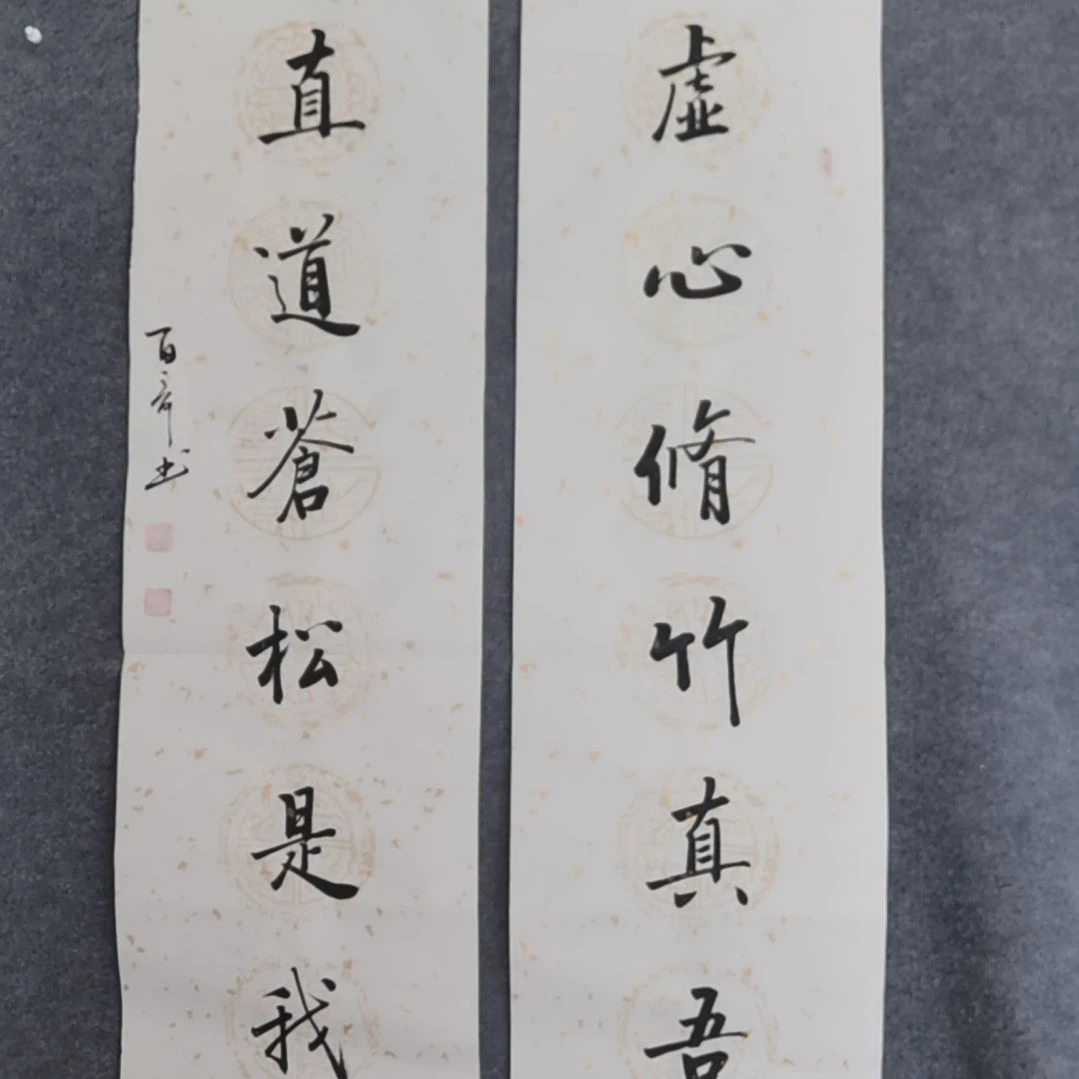 虚心脩竹真吾
直道蒼松是我
百奇书